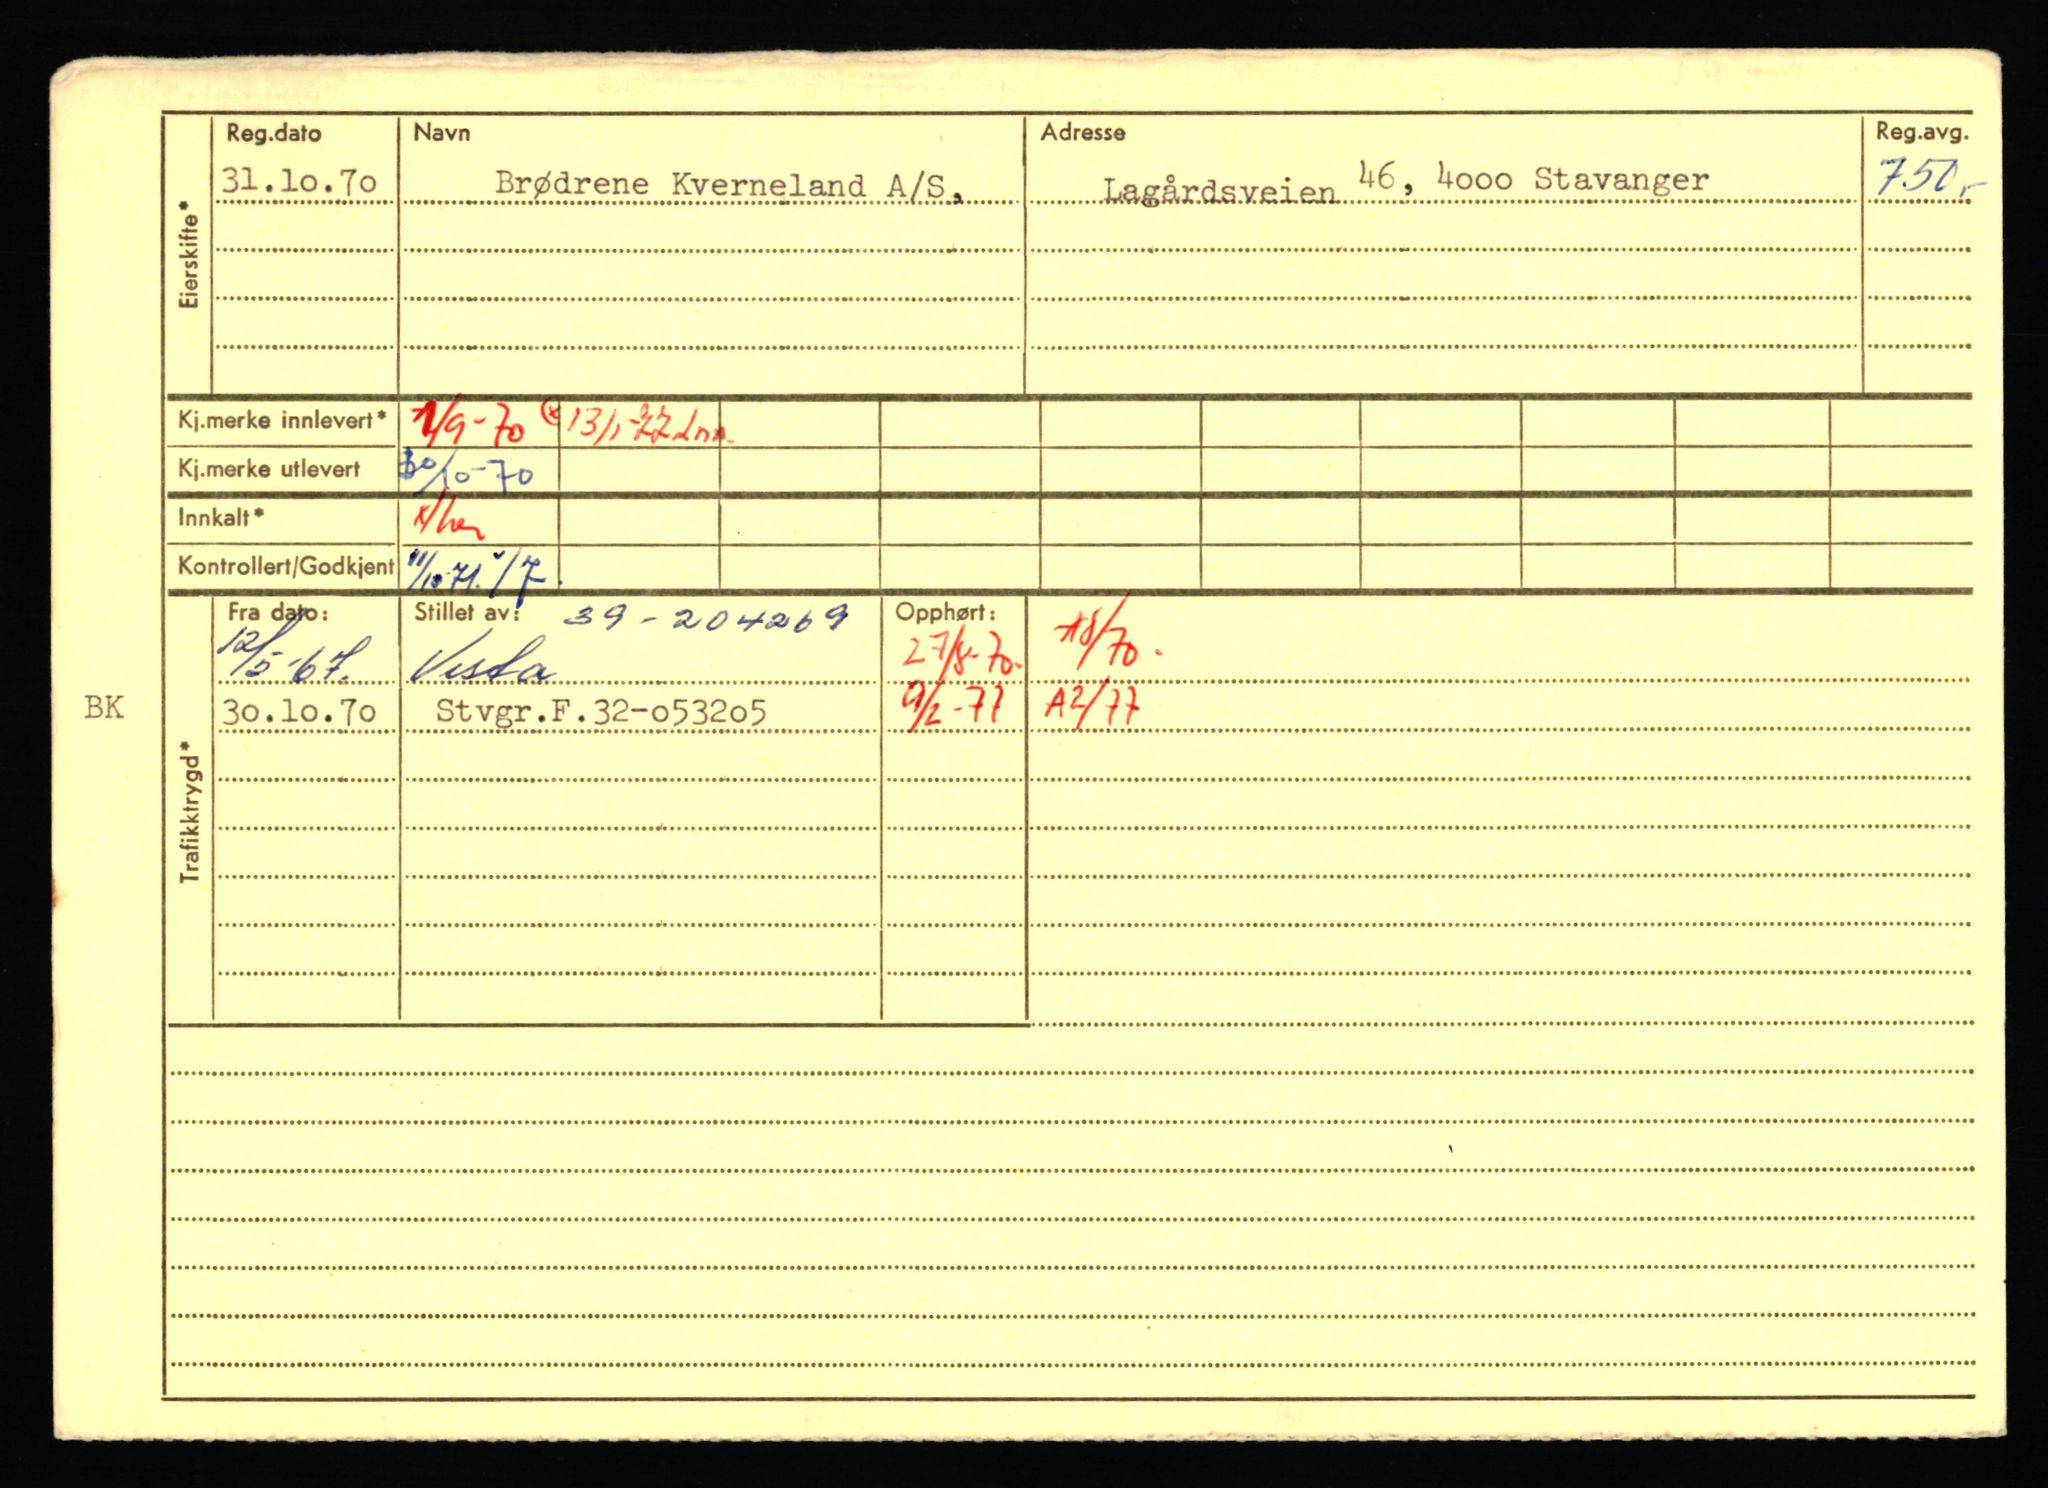 Reg.dato Navn Adresse Reg.avg.
31.10.70 Brødrene Kverneland A/S, Lagårdsveien 46, 4000 Stavanger 750,-
Eierskifte*
Kj.merke innlevert* 1/9-70 13/1-77
Kj.merke utlevert 30/10-70
Innkalt*
Kontrollert/Godkjent 11/10-71.
Fra dato: Stillet av: 39-204269 Opphørt:
12/5-67. Vesta 27/8-70. A8/70.
BK 30.10.70 Stvgr.F.32-053205 9/2-77 A2/77
Trafikktrygd*